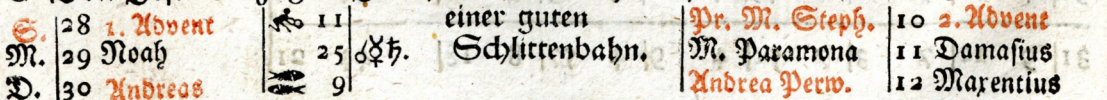 S. 28 1. Advent 11 einer guten Pr. M. Steph. 10 2. Advent
M. 29 Noah 25 ☌☿♄. Schlittenbahn. M. Paramona 11 Damasius
D. 30 Andreas 9 Andrea Perw. 12 Maxentius